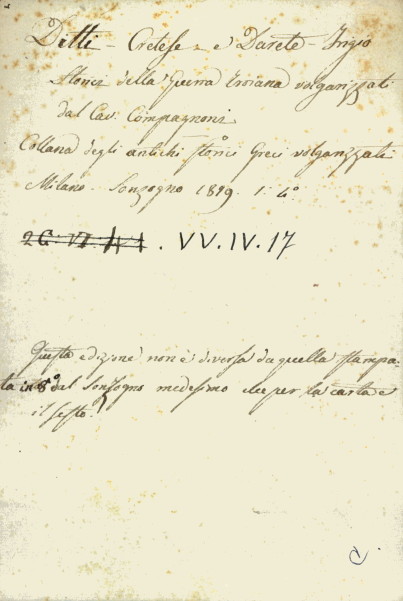 Ditti - Cretese - e Darete - Frigio
Storici della Guerra Troiana volgarizzati
dal Cav. Compagnoni
Collana degli antichi storici Greci volgarizzati
Milano. Sonzogno 1819. 1: 4.°
2C. VI. 44. VV. IV. 17
Questa edizione non è diversa da quella stampa-
ta in 8.° dal Sonzogno medesimo che per la carta e
il sesto.
C